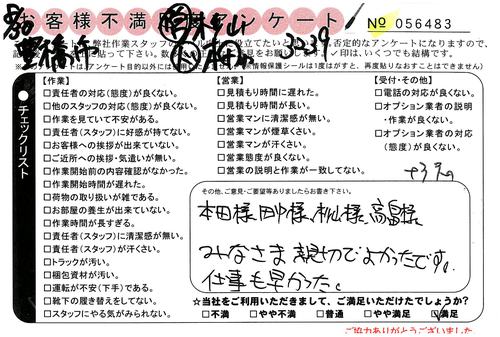 お客様不満足アンケート
№ 056483
チェックリスト
【作業】
□責任者の対応(態度)が良くない。
□他のスタッフの対応(態度)が良くない。
□作業を見ていて不安がある。
□責任者(スタッフ)に好感が持てない。
□お客様への挨拶が出来ていない。
□ご近所への挨拶・気遣いが無い。
□作業開始前の内容確認がなかった。
□作業開始時間が遅れた。
□荷物の取り扱いが雑である。
□お部屋の養生が出来ていない。
□作業時間が長すぎる。
□責任者(スタッフ)に清潔感が無い。
□責任者(スタッフ)が汗くさい。
□トラックが汚い。
□梱包資材が汚い。
□運転が不安(下手)である。
□靴下の履き替えをしてない。
□スタッフにやる気がみられない。
【営業】
□見積もり時間に遅れた。
□見積もり時間が長い。
□営業マンに清潔感が無い。
□営業マンが煙草くさい。
□営業マンが汗くさい。
□営業態度が良くない。
□営業の説明と作業が一致してない。
【受付・その他】
□電話の対応が良くない。
□オプション業者の説明
・作業が良くない。
□オプション業者の対応
(態度)が良くない。
その他、ご意見・ご要望等ありましたらお書き下さい。
本田様、田中様、秋山様、高畠様
みなさま親切でよかったです。
仕事も早かった。
☆当社をご利用いただきまして、ご満足いただけたでしょうか?
□不満 □やや不満 □普通 □やや満足 ☑満足
ご協力ありがとうございました